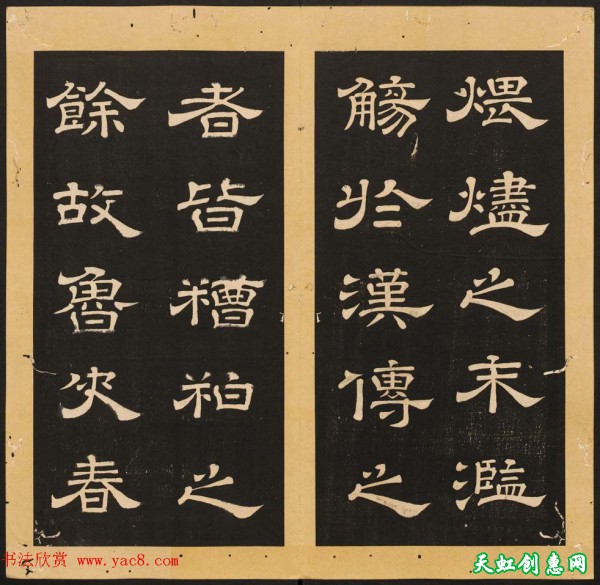 煨燼之末濫
觴於漢傳之
者皆糟粕之
餘故魯史春
书法欣赏 www.yac8.com
天虹创惠网